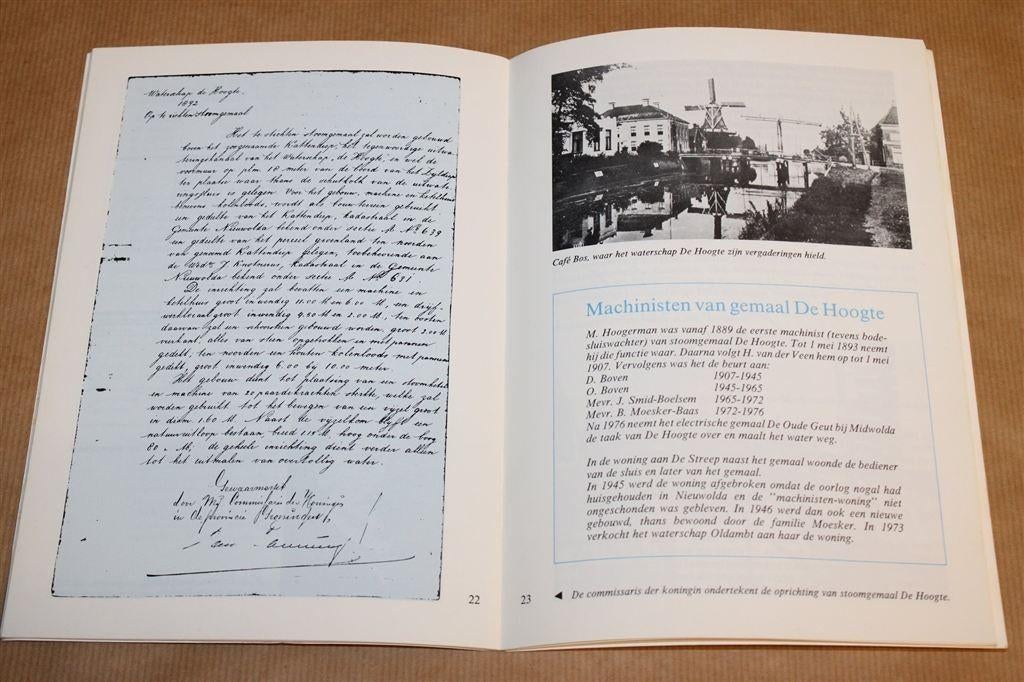 Waterschap de Hoogte.
1892
Op te richten Stoomgemaal
Het te stichten stoomgemaal zal worden gebouwd
boven het zoogenaamde Kattendiep, het tegenwoordige uitwa-
teringskanaal van het Waterschap "de Hoogte", en wel de
voormuur op plm. 18 meter van de boord van het
ter plaatse waar thans de schutkolk van de uitwate-
ringssluis is gelegen. Voor het gebouw, machine en ketelhuis
benevens kolenloods, wordt als bouwterrein gebruikt
een gedeelte van het Kattendiep, kadastraal in de
Gemeente Nieuwolda bekend onder sectie M. No. 639
en gedeelte van het perceel groenland ten noorden
van genoemd Kattendiep gelegen, toebehoorende aan
de Wed. J. kadastraal in de Gemeente
Nieuwolda bekend onder sectie M. No. 631.
De inrichting zal bevatten een machine en
ketelhuis groot inwendig 11.00 M en 6.00 M, een drijf-
werklocaal groot inwendig 4.50 M en 2.00 M, ten oosten
daarvan zal een schoorsteen gebouwd worden, groot 2.00 M
vierkant, alles van steen opgetrokken en met pannen
gedekt, ten noorden een houten kolenloods met pannen
gedekt, groot inwendig 6.00 bij 10.00 meter.
Het gebouw dient tot plaatsing van een stoomketel
en machine van 20 paardekrachten sterkte, welke zal
worden gebruikt tot het bewegen van een vijzel groot
in diam. 1.60 M. Naast de vijzelkom blijft een
natuuruitloop bestaan, breed hoog onder de boog
80 M, de geheele inrichting dient verder alleen
tot het uitmalen van overtollig water.
Gewaarmerkt
door Mij Commissaris der Koningin
in de provincie Groningen,
22
Café Bos, waar het waterschap De Hoogte zijn vergaderingen hield.
Machinisten van gemaal De Hoogte
M. Hoogerman was vanaf 1889 de eerste machinist (tevens bode-
sluiswachter) van stoomgemaal De Hoogte. Tot 1 mei 1893 neemt
hij die functie waar. Daarna volgt H. van der Veen hem op tot 1 mei
1907. Vervolgens was het de beurt aan:
D. Boven 1907-1945
O. Boven 1945-1965
Mevr. J. Smid-Boelsem 1965-1972
Mevr. B. Moesker-Baas 1972-1976
Na 1976 neemt het electrische gemaal De Oude Geut bij Midwolda
de taak van De Hoogte over en maalt het water weg.
In de woning aan De Streep naast het gemaal woonde de bediener
van de sluis en later van het gemaal.
In 1945 werd de woning afgebroken omdat de oorlog nogal had
huisgehouden in Nieuwolda en de "machinisten-woning" niet
ongeschonden was gebleven. In 1946 werd dan ook een nieuwe
gebouwd, thans bewoond door de familie Moesker. In 1973
verkocht het waterschap Oldambt aan haar de woning.
23 ◄ De commissaris der koningin ondertekent de oprichting van stoomgemaal De Hoogte.